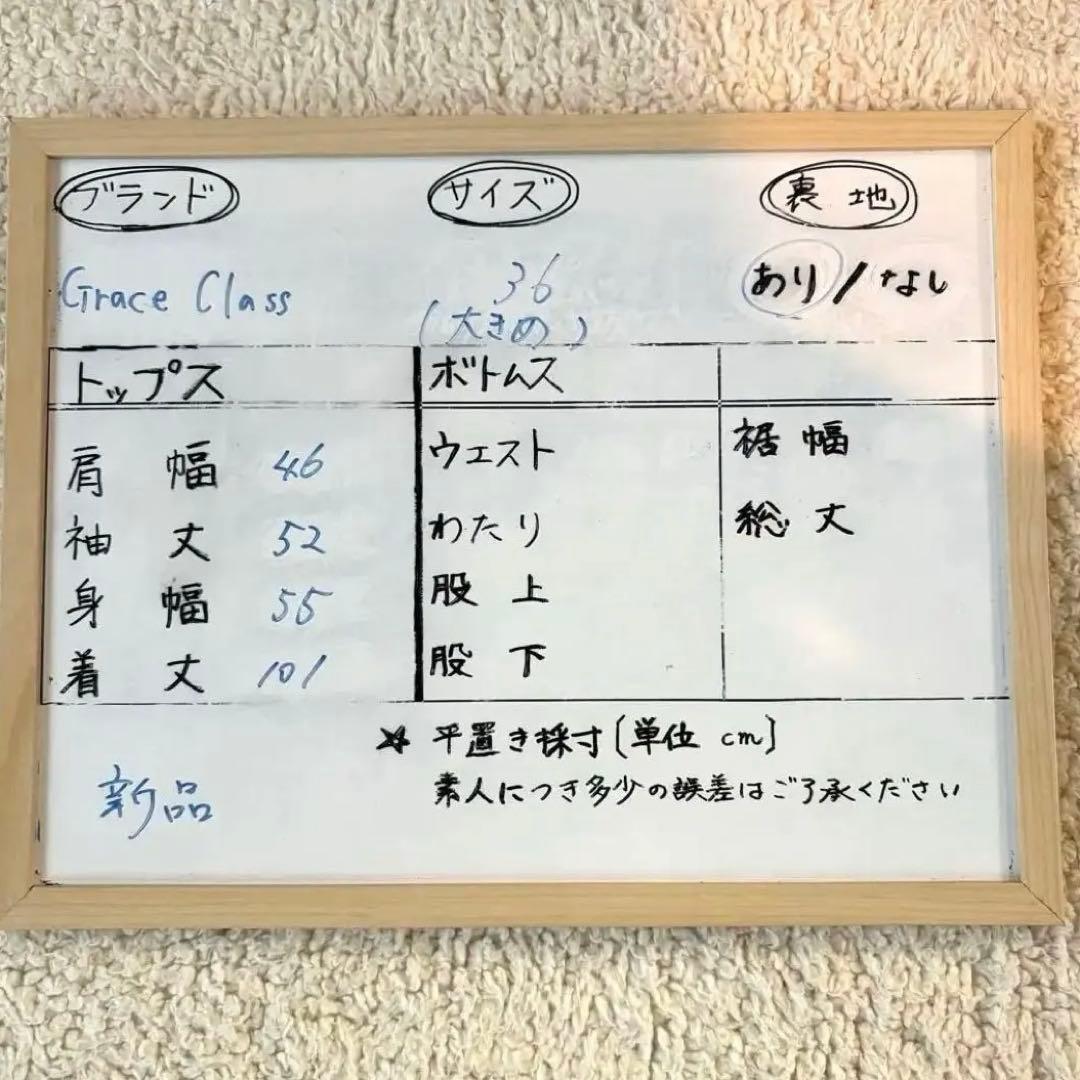 ブランド サイズ 裏地
Grace Class 36 あり/なし
(大きめ)
トップス ボトムス
肩幅 46 ウエスト 裾幅
袖丈 52 わたり 総丈
身幅 55 股上
着丈 101 股下
★ 平置き採寸[単位 cm]
新品 素人につき多少の誤差はご了承ください